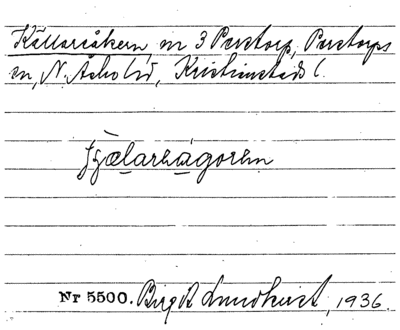 Källaråkern m 3 Perstorp, Perstorps
sn, N. Åsbo hd, Kristianstads l.
Nr 5500. Birgit Lundkvist, 1936.